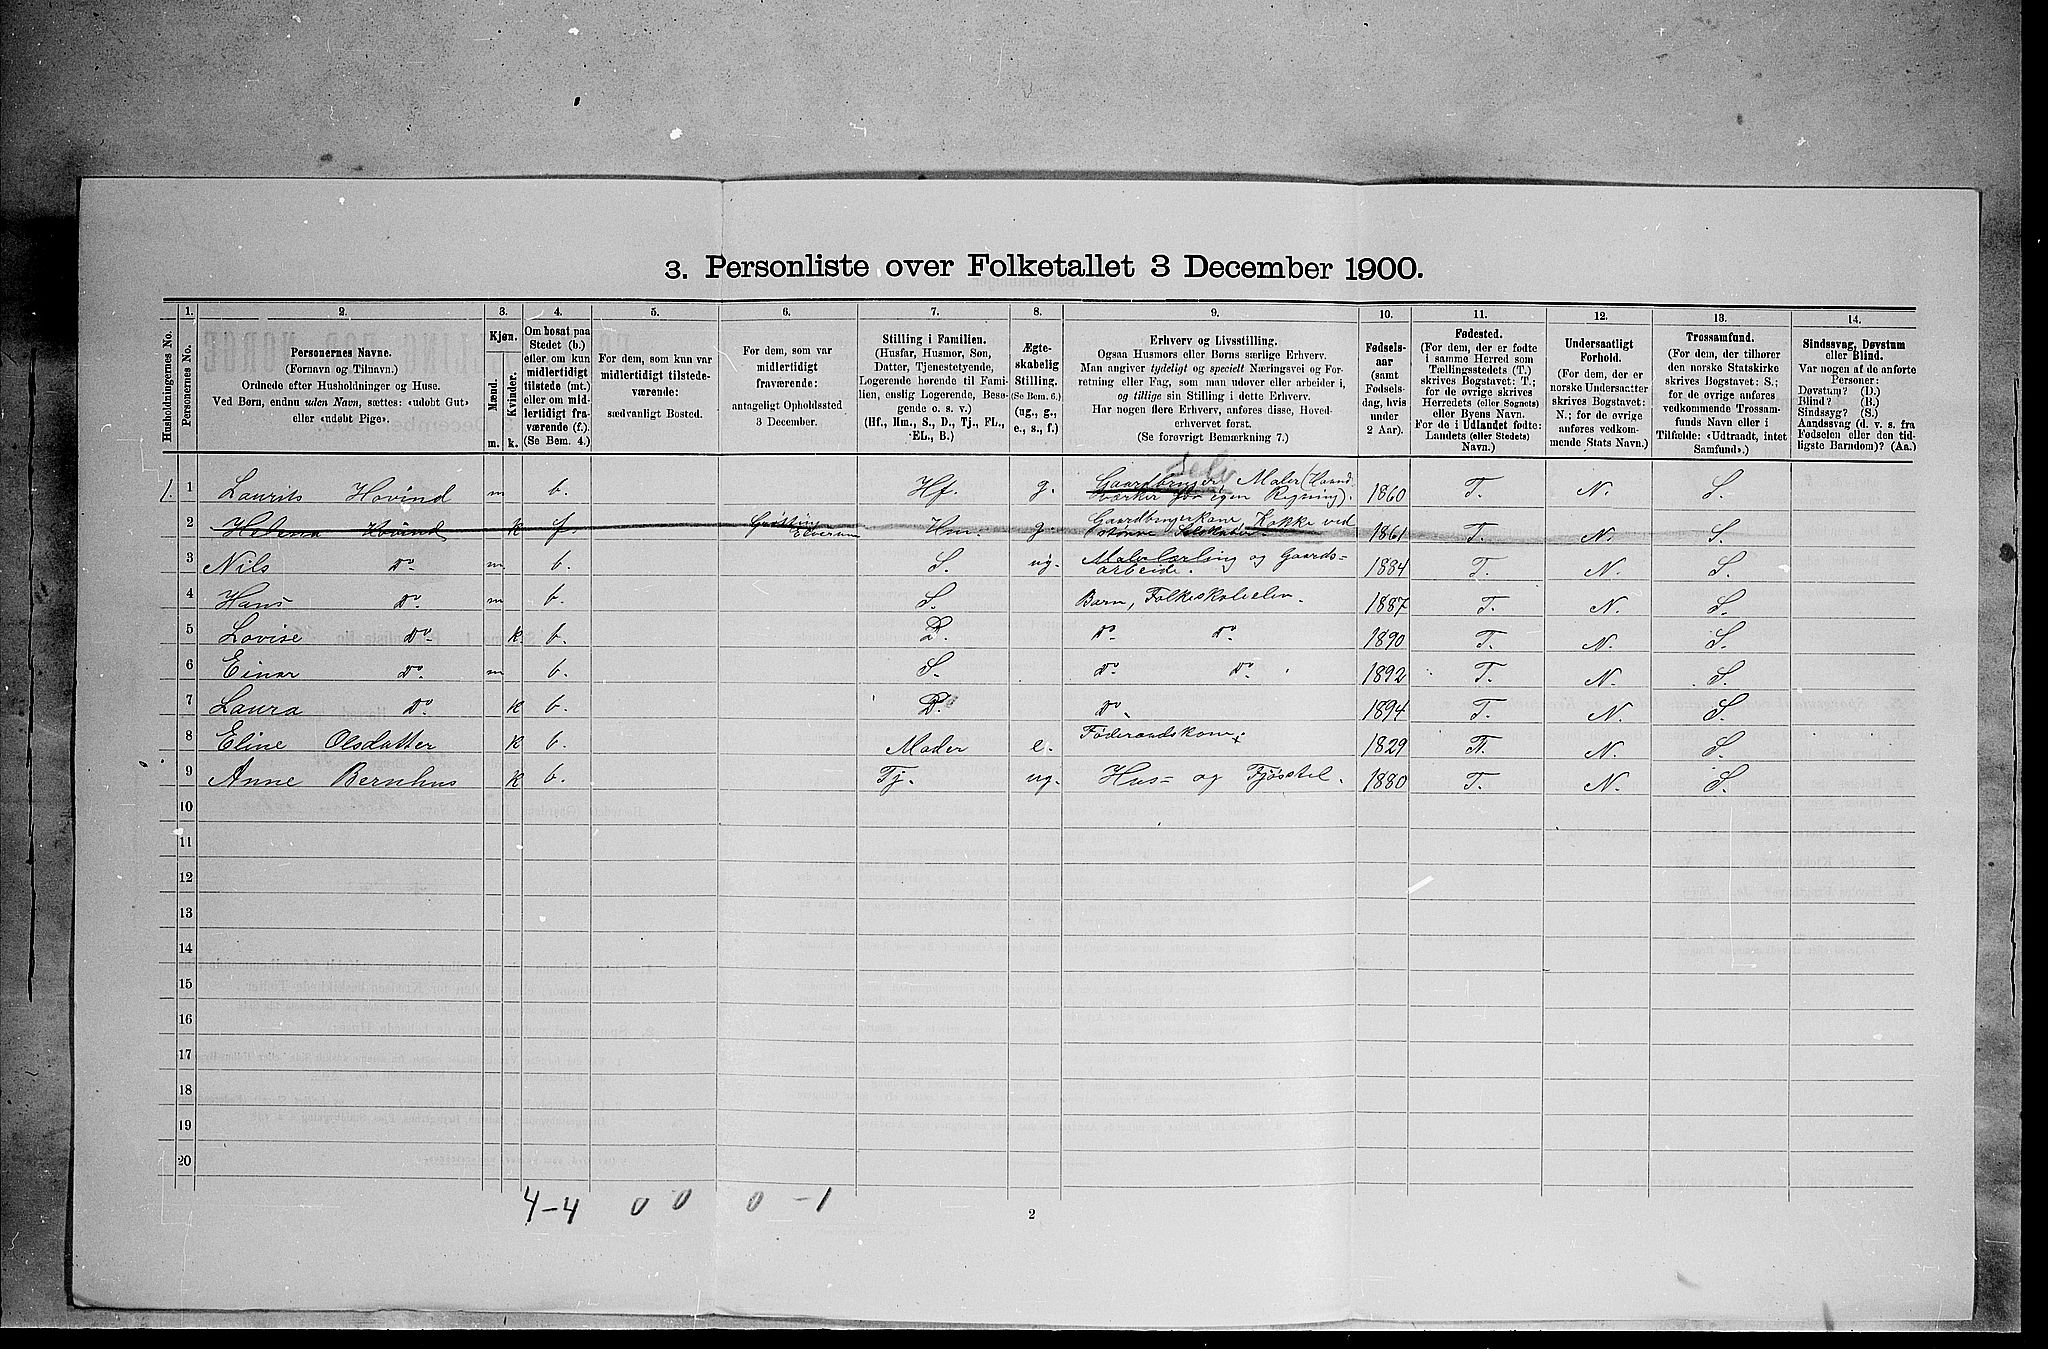 3. Personliste over Folketallet 3 December 1900.
1. 2. 3. 4. 5. 6. 7. 8. 9. 10. 11. 12. 13. 14.
Husholdningernes No.
Personernes No.
Personernes Navne.
(Fornavn og Tilnavn.)
Ordnede efter Husholdninger og Huse.
Ved Børn, endnu uden Navn, sættes: «udøbt Gut»
eller «udøbt Pige».
Kjøn.
Mænd.
Kvinder.
m. k.
Om bosat paa
Stedet (b.)
eller om kun
midlertidigt
tilstede (mt.)
eller om mid-
lertidigt fra-
værende (f.)
(Se Bem. 4.)
For dem, som kun var
midlertidigt tilstede-
værende:
sædvanligt Bosted.
For dem, som var
midlertidigt
fraværende:
antageligt Opholdssted
3 December.
Stilling i Familien.
(Husfar, Husmor, Søn,
Datter, Tjenestetyende,
Logerende hørende til Fami-
lien, enslig Logerende, Besø-
gende o. s. v.)
(Hf., Hm., S., D., Tj., FL.,
EL., B.)
Ægte-
skabelig
Stilling.
(Se Bem. 6.)
(ug., g.,
e., s., f.)
Erhverv og Livsstilling.
Ogsaa Husmors eller Børns særlige Erhverv.
Man angiver tydeligt og specielt Næringsvei og For-
retning eller Fag, som man udøver eller arbeider i,
og tillige sin Stilling i dette Erhverv.
Har nogen flere Erhverv, anføres disse, Hoved-
erhvervet først.
(Se forøvrigt Bemærkning 7.)
Fødsels-
aar
(samt
Fødsels-
dag, hvis
under
2 Aar).
Fødested.
(For dem, der er fødte
i samme Herred som
Tællingsstedets (T.)
skrives Bogstavet: T.;
for de øvrige skrives
Herredets (eller Sognets)
eller Byens Navn.
For de i Udlandet fødte:
Landets (eller Stedets)
Navn.)
Undersaatligt
Forhold.
(For dem, der er
norske Undersaatter
skrives Bogstavet:
N.; for de øvrige
anføres vedkom-
mende Stats Navn.)
Trossamfund.
(For dem, der tilhører
den norske Statskirke
skrives Bogstavet: S.;
for de øvrige anføres
vedkommende Trossam-
funds Navn eller i
Tilfælde: «Udtraadt, intet
Samfund».)
Sindssvag, Døvstum
eller Blind.
Var nogen af de anførte
Personer:
Døvstum? (D.)
Blind? (B.)
Sindssyg? (S.)
Aandssvag (d. v. s. fra
Fødselen eller den tid-
ligste Barndom)? (Aa.)
1. 1 Laurits Hovind m b. Hf. g. Gaardbruger, Maler (Haand-
værker for egen Regning). 1860 T. N. S.
2 Helena Hovind k f. Elverum Hm. g. Gaardbrugerkone, Kokke ved
større Selskaber. 1861 T. N. S.
3 Nils Do. m b. S. ug. Malerlærling og Gaards-
arbeide. 1884 T. N. S.
4 Hans Do. m b. S. Barn, Folkeskoleelev. 1887 T. N. S.
5 Lovise Do. k. b. D. Do. Do. 1890 T. N. S.
6 Einar Do. m b. S. Do. Do. 1892 T. N. S.
7 Laura Do. k b. D. Do. 1894 T. N. S.
8 Eline Olsdatter k b. Moder e. Føderaadskone. 1829 T. N. S.
9 Anne Bernhus k b. Tj. ug. Hus- og Fjøsstel. 1880 T. N. S.
10
11
12
13
14
15
16
17
18
19
20
4-4 0 0 0 -1
2